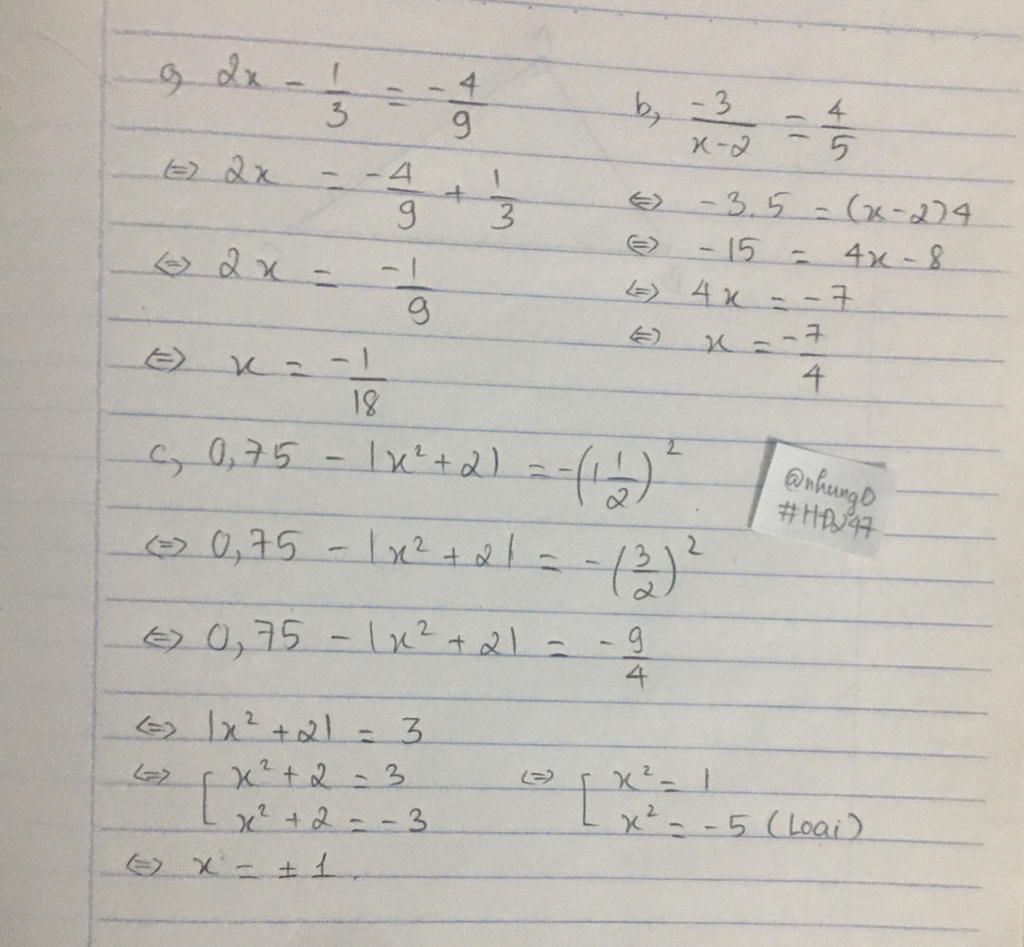 a, 2x - 1/3 = -4/9
⇔ 2x = -4/9 + 1/3
⇔ 2x = -1/9
⇔ x = -1/18
b, -3/(x-2) = 4/5
⇔ -3.5 = (x-2)4
⇔ -15 = 4x - 8
⇔ 4x = -7
⇔ x = -7/4
c, 0,75 - |x² + 2| = -(1 1/2)²
⇔ 0,75 - |x² + 2| = -(3/2)²
⇔ 0,75 - |x² + 2| = -9/4
⇔ |x² + 2| = 3
⇔ [ x² + 2 = 3 ⇔ [ x² = 1
x² + 2 = -3 x² = -5 (Loại)
⇔ x = ±1.
@nhung0